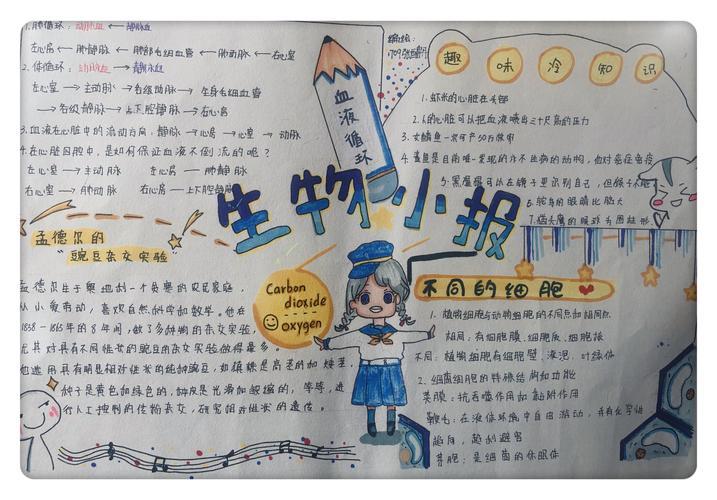 1.肺循环：动脉血 ← 静脉血
左心房 ← 肺静脉 ← 肺部毛细血管 ← 肺动脉 ← 右心室
2.体循环：动脉血 → 静脉血
左心室 → 主动脉 → 各级动脉 → 全身毛细血管
→ 各级静脉 → 上下腔静脉 → 右心房
3.血液在心脏中的流动方向：静脉 → 心房 → 心室 → 动脉
4.在心脏四腔中，是如何保证血液不倒流的呢？
左心室 — 主动脉 左心房 — 肺静脉
右心室 — 肺动脉 右心房 — 上下腔静脉
血液循环
趣味冷知识
1.虾米的心脏在头部
2.人的心脏可以把血液喷出三十尺高的压力
3.
4.鲨鱼是目前唯一发现的不生病的动物，他对癌症免疫
5.黑猩猩可以在镜子里识别自己，但猴子不能
6.鸵鸟的眼睛比脑大
7.猫头鹰的眼球为圆柱形
生物小报
孟德尔的
“豌豆杂交实验”
孟德尔生于奥地利一个贫寒的农民家庭，
从小爱劳动，喜欢自然科学和数学。他在
1858-1865年的8年间，做了多种物的杂交实验，
尤其对具有不同性状的豌豆的杂交实验做得最多。
他选用具有明显相对性状的纯种豌豆，如植株是高茎的和矮茎，
种子是黄色和绿色的，种皮是光滑和皱缩的，等等，进
行人工控制的传粉杂交，研究相对性状的遗传。
Carbon
dioxide
oxygen
不同的细胞
1.植物细胞与动物细胞的不同点和相同点
相同：有细胞膜、细胞质、细胞核
不同：植物细胞有细胞壁、液泡、叶绿体
2.细菌细胞的特殊结构和功能
荚膜：抗吞噬作用和黏附作用
鞭毛：在液体环境中自由游动，具有化学性
趋向，趋利避害
芽孢：是细菌的休眠体